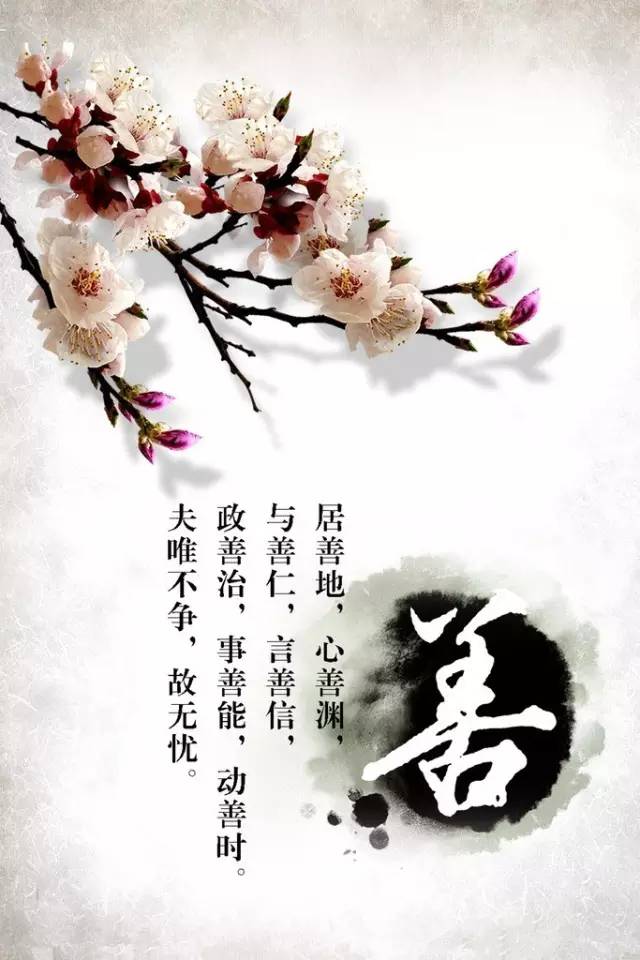 善
居善地，心善渊，
与善仁，言善信，
政善治，事善能，动善时。
夫唯不争，故无忧。